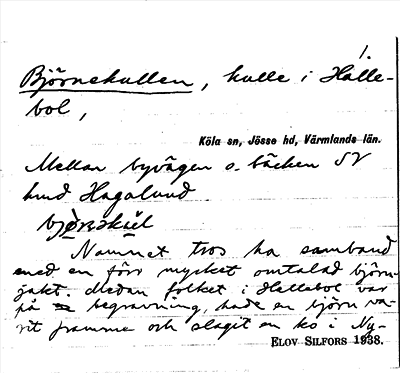 1.
Björnekullen, kulle i Hälle-
bol,
Köla sn, Jösse hd, Värmlands län.
Mellan byvägen o. bäcken SV
hund Hagalund
Namnet tros ha samband
med en förr mycket omtalad björn-
jakt. Medan folket i Hällebol var
på begravning, hade en björn va-
rit framme och slagit en ko i Ny-
ELOV SILFORS 1938.